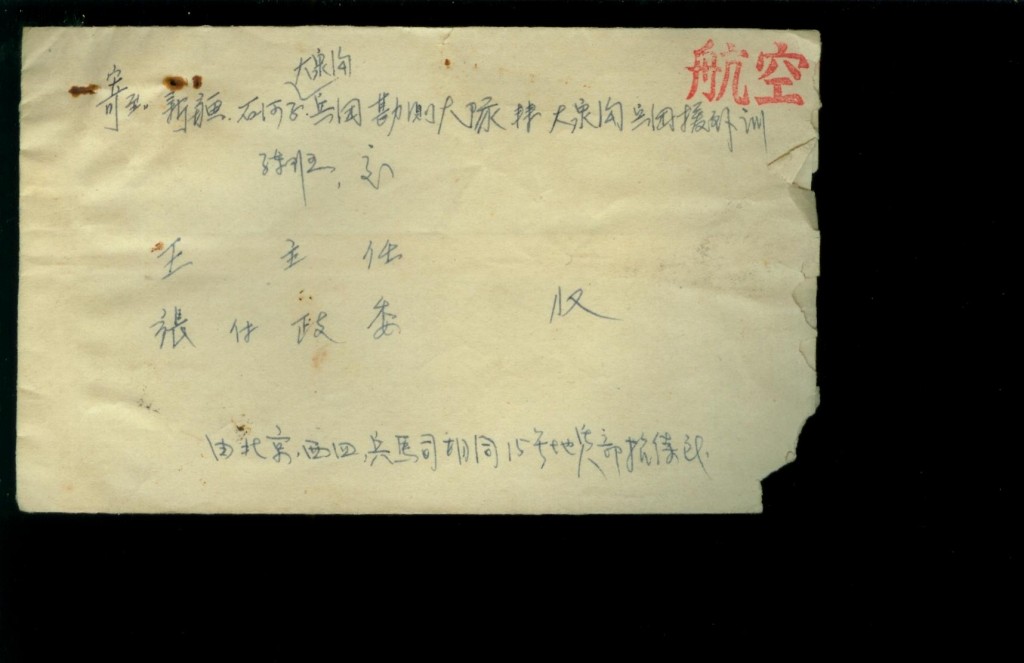 航空
大泉沟
寄至. 新疆.石河子.兵团勘測大隊轉大泉沟兵团援外训
练班,交
王 主 任
張付政委 收
由北京.西四.兵馬司胡同15号地质部招待所.